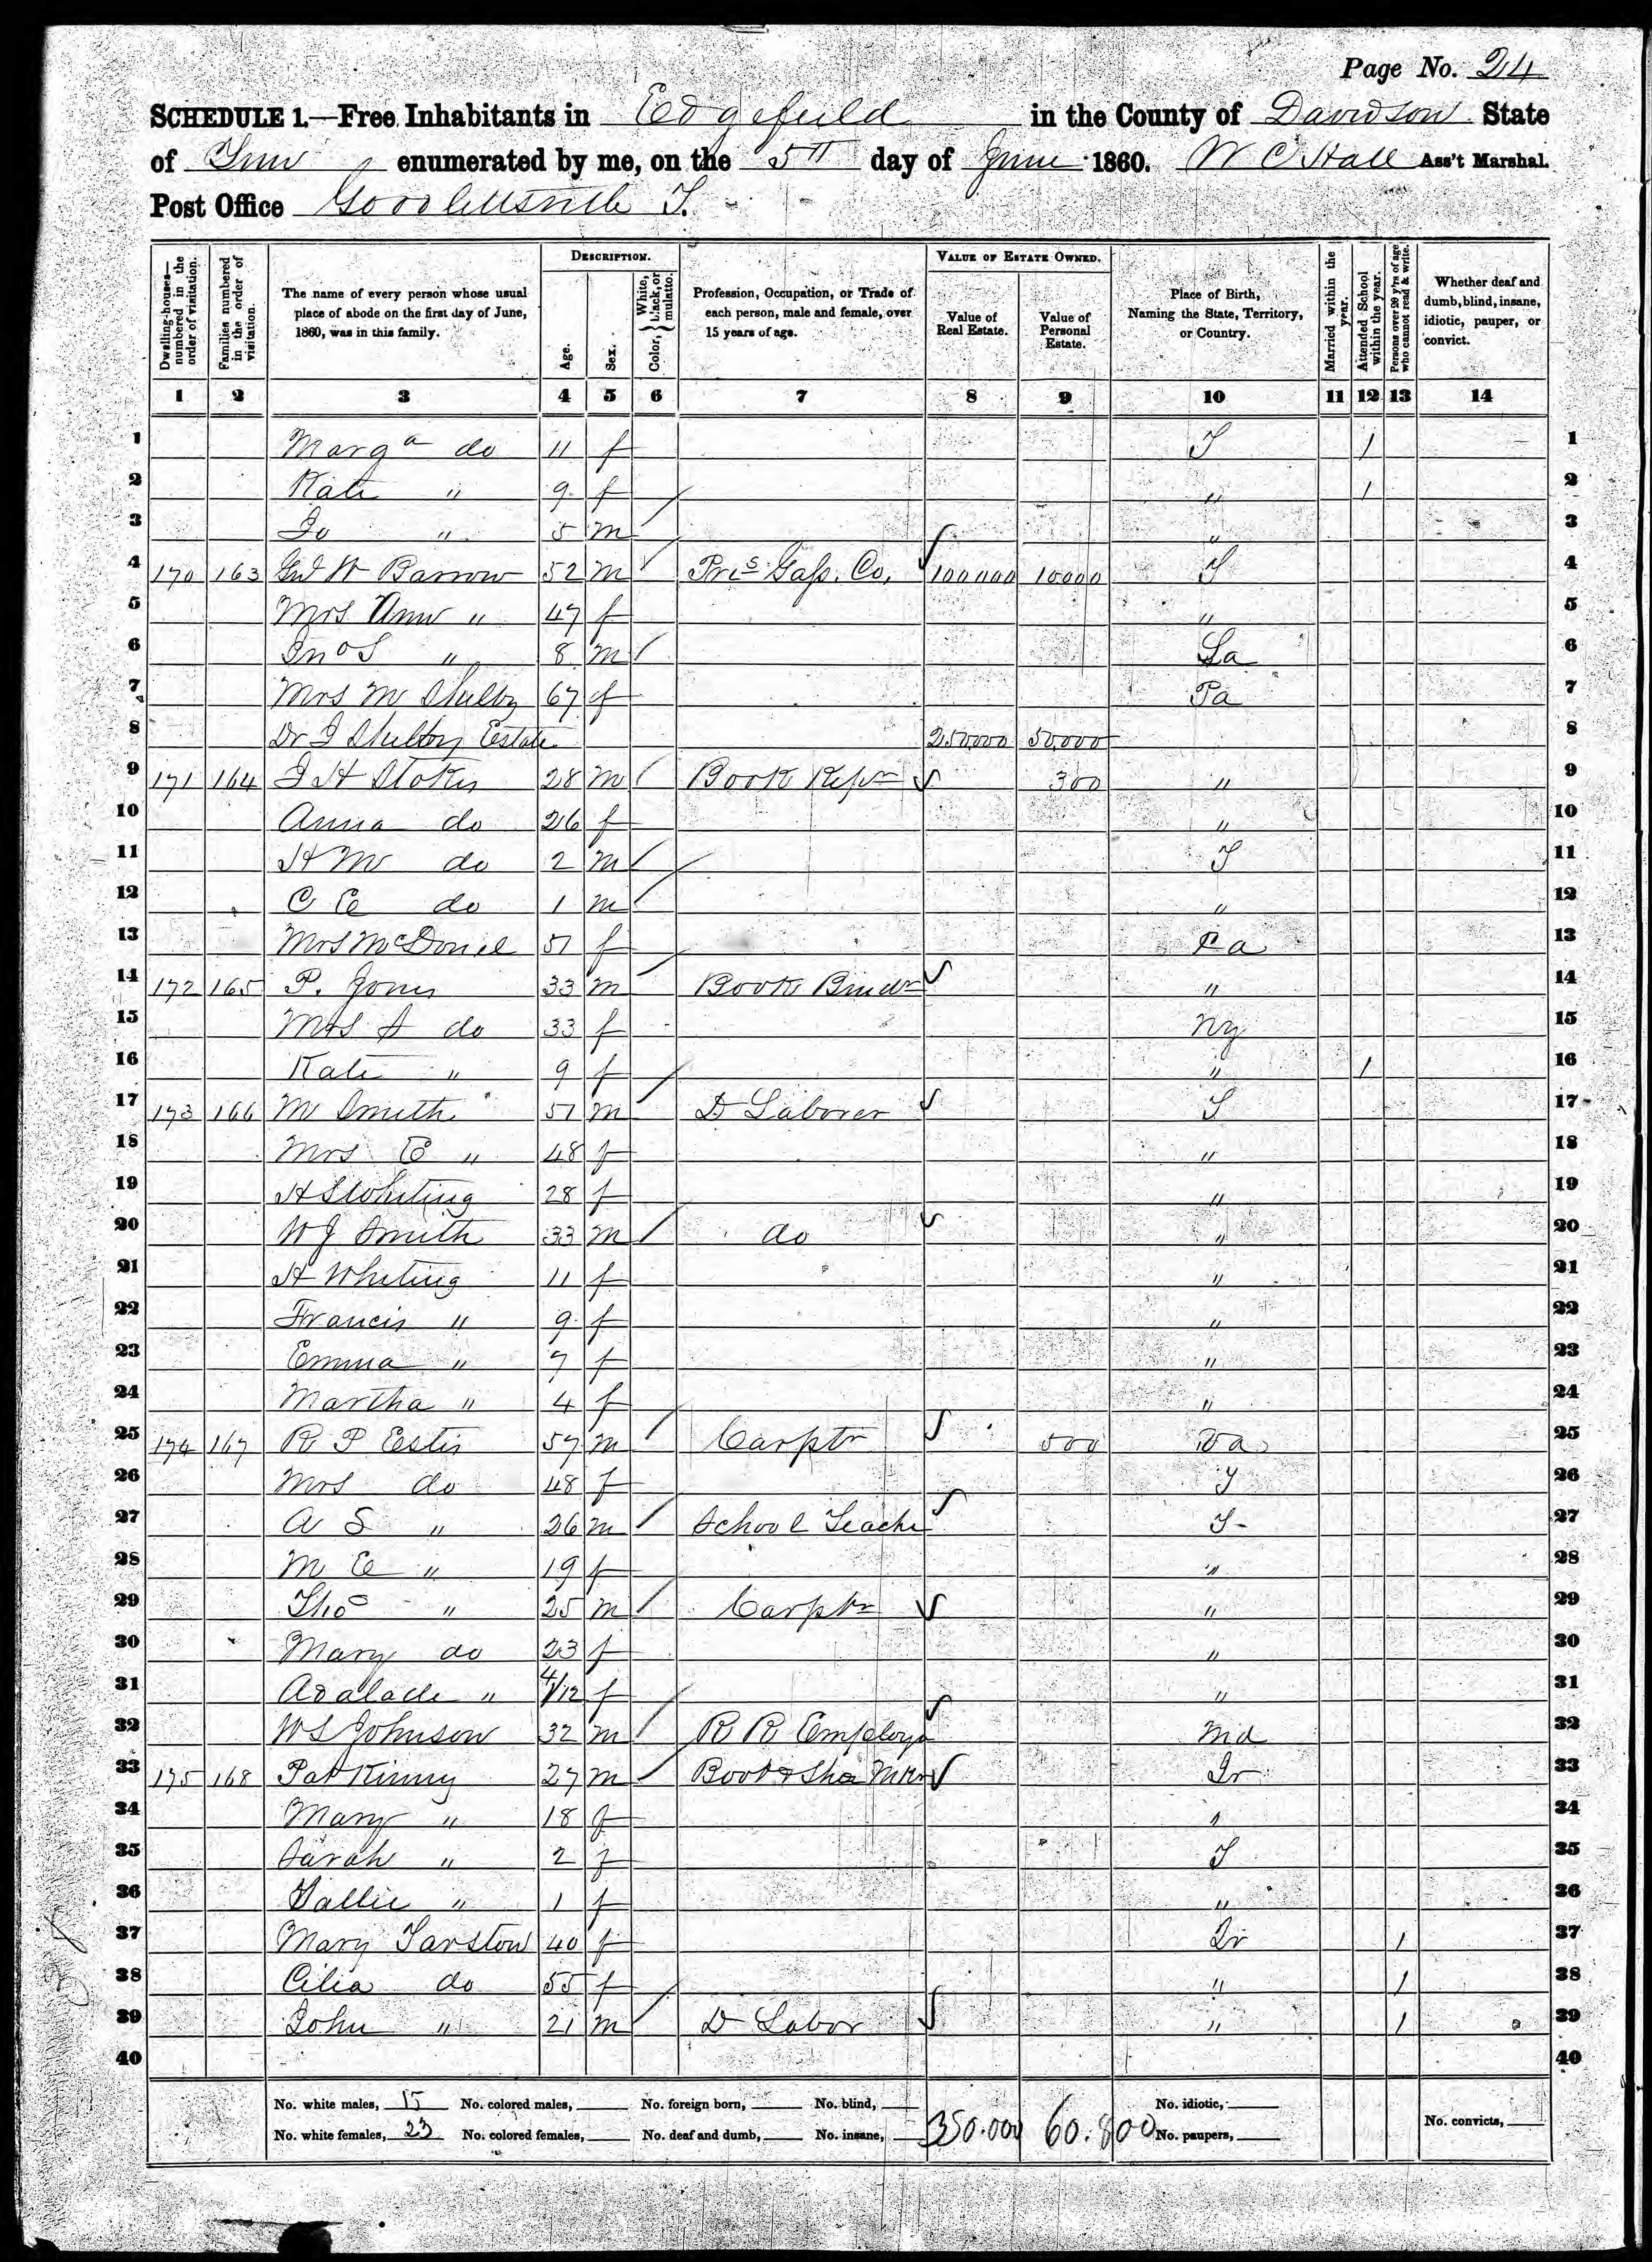 Page No. 24
SCHEDULE 1.—Free Inhabitants in Edgefield in the County of Davidson State
of Tenn enumerated by me, on the 5th day of June 1860. W C Hall Ass't Marshal.
Post Office Goodlettsville T.
Dwelling-houses—numbered in the order of visitation.
Families numbered in the order of visitation.
The name of every person whose usual place of abode on the first day of June, 1860, was in this family.
DESCRIPTION.
Age.
Sex.
Color, { White, black, or mulatto.
Profession, Occupation, or Trade of each person, male and female, over 15 years of age.
VALUE OF ESTATE OWNED.
Value of Real Estate.
Value of Personal Estate.
Place of Birth, Naming the State, Territory, or Country.
Married within the year.
Attended School within the year.
Persons over 20 y'rs of age who cannot read & write.
Whether deaf and dumb, blind, insane, idiotic, pauper, or convict.
1 2 3 4 5 6 7 8 9 10 11 12 13 14
1 Marga do 11 f T / 1
2 Kate " 9 f " / 2
3 Jo " 5 m " 3
4 170 163 Genl W Barrow 52 m / Pres Gass. Co. 100000 10000 T 4
5 Mrs Ann " 47 f " 5
6 Jno S " 8 m / La 6
7 Mrs M Shelby 67 f Pa 7
8 Dr J Shelby Estate 250000 50000 8
9 171 164 J H Stokes 28 m / Book Kepr 300 " 9
10 Anna do 26 f " 10
11 H M do 2 m / T 11
12 C E do 1 m / " 12
13 Mrs McDonel 51 f Pa 13
14 172 165 P. Jones 33 m / Book Bindr " 14
15 Mrs S do 33 f Ny 15
16 Kate " 9 f " / 16
17 173 166 M Smith 51 m / D Laborer T 17
18 Mrs E " 48 f " 18
19 H S Whiting 28 f " 19
20 W J Smith 33 m / do " 20
21 H Whiting 11 f " 21
22 Francis " 9 f " 22
23 Emma " 7 f " 23
24 Martha " 4 f " 24
25 174 167 R P Estis 57 m / Carptr 500 Va 25
26 Mrs do 48 f T 26
27 A S " 26 m / School Teache T 27
28 M E " 19 f " 28
29 Thos " 25 m / Carptr " 29
30 Mary do 23 f " 30
31 Adalade " 4/12 f " 31
32 W S Johnson 32 m / R R Employe Md 32
33 175 168 Pat Kinny 27 m / Boot & Shoe Mkr Ir 33
34 Mary " 18 f " 34
35 Sarah " 2 f T 35
36 Sallie " 1 f " 36
37 Mary Tarstow 40 f Ir / 37
38 Cilia do 55 f " / 38
39 John " 21 m / D Labor " / 39
40 40
No. white males, 15 No. colored males, No. foreign born, No. blind, No. idiotic,
No. white females, 23 No. colored females, No. deaf and dumb, No. insane, 350.000 60.800 No. paupers, No. convicts,